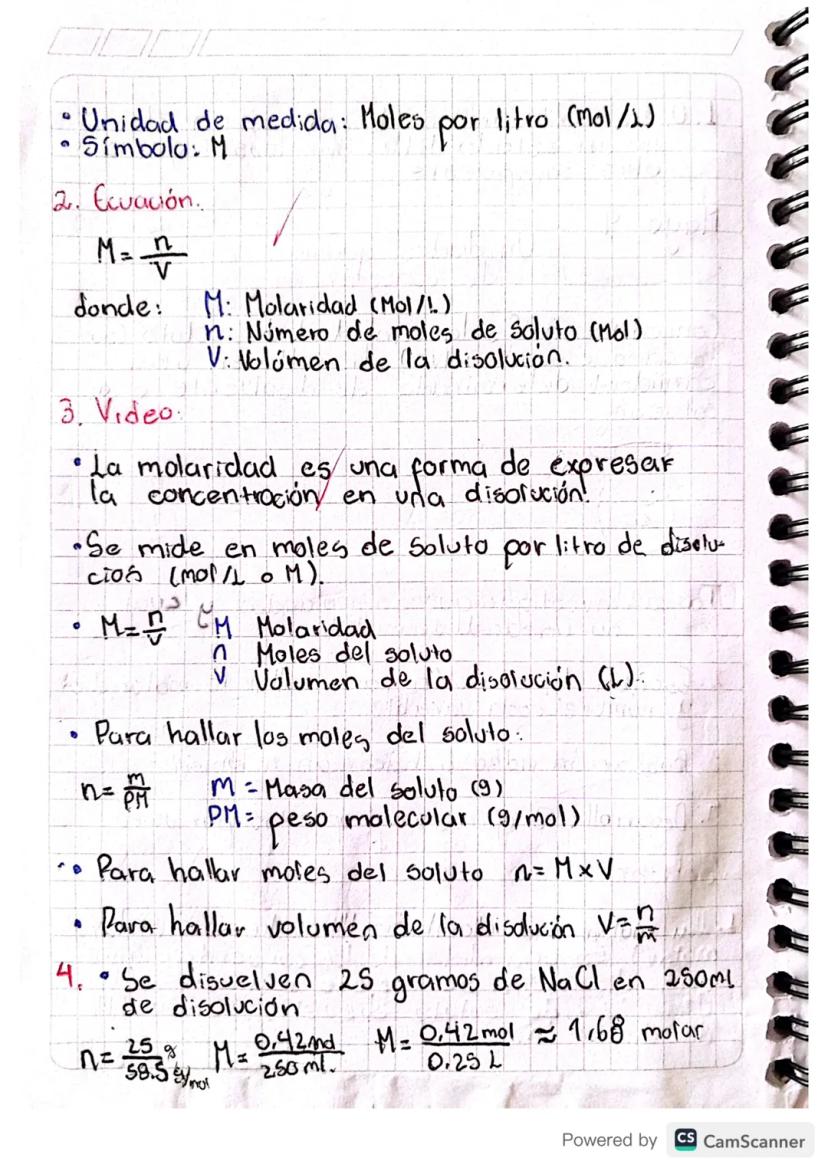 • Unidad de medida: Moles por litro (mol/L)
• Símbolo: M
2. Ecuación.
M = n/V
donde: M: Molaridad (Mol/L)
n: Número de moles de soluto (Mol)
V: Volúmen de la disolución.
3. Video.
• La molaridad es una forma de expresar
la concentración en una disolución.
• Se mide en moles de soluto por litro de disolu-
cios (mol/L o M).
• M = n/V M Molaridad
n Moles del soluto
V Volumen de la disolución (L).
• Para hallar los moles del soluto:
n = m/PM m = Masa del soluto (g)
PM = peso molecular (g/mol)
• Para hallar moles del soluto n = M x V
• Para hallar volumen de la disolución V = n/m
4. • Se disuelven 25 gramos de NaCl en 250ml
de disolución
n = 25 g/58.5 g/mol M = 0,42 mol/250 ml. M = 0,42 mol/0.25 L ≈ 1,68 molar
Powered by CS CamScanner